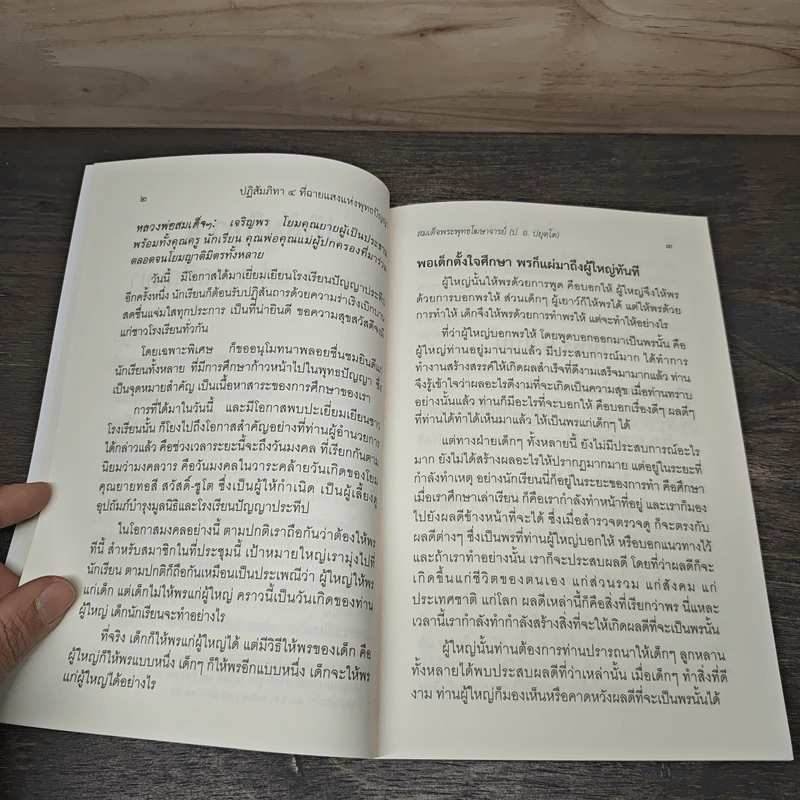 ๒
ปฏิสัมภิทา ๔ ที่ฉายแสงแห่งพุทธปัญญา
หลวงพ่อสมเด็จฯ: เจริญพร โยมคุณยายผู้เป็นประธาน
พร้อมทั้งคุณครู นักเรียน คุณพ่อคุณแม่ผู้ปกครองที่มาร่วม
ตลอดจนโยมญาติมิตรทั้งหลาย
วันนี้ มีโอกาสได้มาเยี่ยมเยียนโรงเรียนปัญญาประทีป
อีกครั้งหนึ่ง นักเรียนก็ต้อนรับปฏิสันถารด้วยความร่าเริงเบิกบาน
สดชื่นแจ่มใสทุกประการ เป็นที่น่ายินดี ขอความสุขสวัสดิ์จงมี
แก่ชาวโรงเรียนทั่วกัน
โดยเฉพาะพิเศษ ก็ขออนุโมทนาพลอยชื่นชมยินดีแก่
นักเรียนทั้งหลาย ที่มีการศึกษาก้าวหน้าไปในพุทธปัญญา ซึ่ง
เป็นจุดหมายสำคัญ เป็นเนื้อหาสาระของการศึกษาของเรา
การที่ได้มาในวันนี้ และมีโอกาสพบปะเยี่ยมเยียนชาว
โรงเรียนนั้น ก็โยงไปถึงโอกาสสำคัญอย่างที่ท่านผู้อำนวยการ
ได้กล่าวแล้ว คือช่วงเวลาระยะนี้จะถึงวันมงคล ที่เรียกกันตาม
นิยมว่ามงคลวาร คือวันมงคลในวาระคล้ายวันเกิดของโยม
คุณยายทอสี สวัสดิ์-ชูโต ซึ่งเป็นผู้ให้กำเนิด เป็นผู้เลี้ยงดู
อุปถัมภ์บำรุงมูลนิธิและโรงเรียนปัญญาประทีป
ในโอกาสมงคลอย่างนี้ ตามปกติเราถือกันว่าต้องให้พร
ทีนี้ สำหรับสมาชิกในที่ประชุมนี้ เป้าหมายใหญ่เรามุ่งไปที่
นักเรียน ตามปกติก็ถือกันเหมือนเป็นประเพณีว่า ผู้ใหญ่ให้พร
แก่เด็ก แต่เด็กไม่ให้พรแก่ผู้ใหญ่ คราวนี้เป็นวันเกิดของท่าน
ผู้ใหญ่ เด็กนักเรียนจะทำอย่างไร
ที่จริง เด็กก็ให้พรแก่ผู้ใหญ่ได้ แต่มีวิธีให้พรของเด็ก คือ
ผู้ใหญ่ก็ให้พรแบบหนึ่ง เด็กๆ ก็ให้พรอีกแบบหนึ่ง เด็กจะให้พร
แก่ผู้ใหญ่ได้อย่างไร
สมเด็จพระพุทธโฆษาจารย์ (ป. อ. ปยุตฺโต)
๓
พอเด็กตั้งใจศึกษา พรก็แผ่มาถึงผู้ใหญ่ทันที
ผู้ใหญ่นั้นให้พรด้วยการพูด คือบอกให้ ผู้ใหญ่จึงให้พร
ด้วยการบอกพรให้ ส่วนเด็กๆ ผู้เยาว์ก็ให้พรได้ แต่ให้พรด้วย
การทำให้ เด็กจึงให้พรด้วยการทำพรให้ แต่จะทำให้อย่างไร
ที่ว่าผู้ใหญ่บอกพรให้ โดยพูดบอกออกมาเป็นพรนั้น คือ
ผู้ใหญ่ท่านอยู่มานานแล้ว มีประสบการณ์มาก ได้ทำการ
ทำงานสร้างสรรค์ให้เกิดผลสำเร็จที่ดีงามเสร็จมามากแล้ว ท่าน
จึงรู้เข้าใจว่าผลอะไรดีงามที่จะเกิดเป็นความสุข เมื่อท่านทราบ
อย่างนั้นแล้ว ท่านก็มีอะไรที่จะบอกให้ คือบอกเรื่องดีๆ ผลดีๆ
ที่ท่านได้ทำได้เห็นมาแล้ว ให้เป็นพรแก่เด็กๆ ได้
แต่ทางฝ่ายเด็กๆ ทั้งหลายนี้ ยังไม่มีประสบการณ์อะไร
มาก ยังไม่ได้สร้างผลอะไรให้ปรากฏมากมาย แต่อยู่ในระยะที่
กำลังทำเหตุ อย่างนักเรียนนี้ก็อยู่ในระยะของการทำ คือศึกษา
เมื่อเราศึกษาเล่าเรียน ก็คือเรากำลังทำหน้าที่อยู่ และเราก็มอง
ไปยังผลดีข้างหน้าที่จะได้ ซึ่งเมื่อสำรวจตรวจดู ก็จะตรงกับ
ผลดีต่างๆ ซึ่งเป็นพรที่ท่านผู้ใหญ่บอกให้ หรือบอกแนวทางไว้
และถ้าเราทำอย่างนั้น เราก็จะประสบผลดี โดยที่ว่าผลดีก็จะ
เกิดขึ้นแก่ชีวิตของตนเอง แก่ส่วนรวม แก่สังคม แก่
ประเทศชาติ แก่โลก ผลดีเหล่านี้ก็คือสิ่งที่เรียกว่าพร นี่แหละ
เวลานี้เรากำลังทำกำลังสร้างสิ่งที่จะให้เกิดผลดีที่จะเป็นพรนั้น
ผู้ใหญ่นั้นท่านต้องการท่านปรารถนาให้เด็กๆ ลูกหลาน
ทั้งหลายได้พบประสบผลดีที่ว่าเหล่านั้น เมื่อเด็กๆ ทำสิ่งที่ดี
งาม ท่านผู้ใหญ่ก็มองเห็นหรือคาดหวังผลดีที่จะเป็นพรนั้นได้